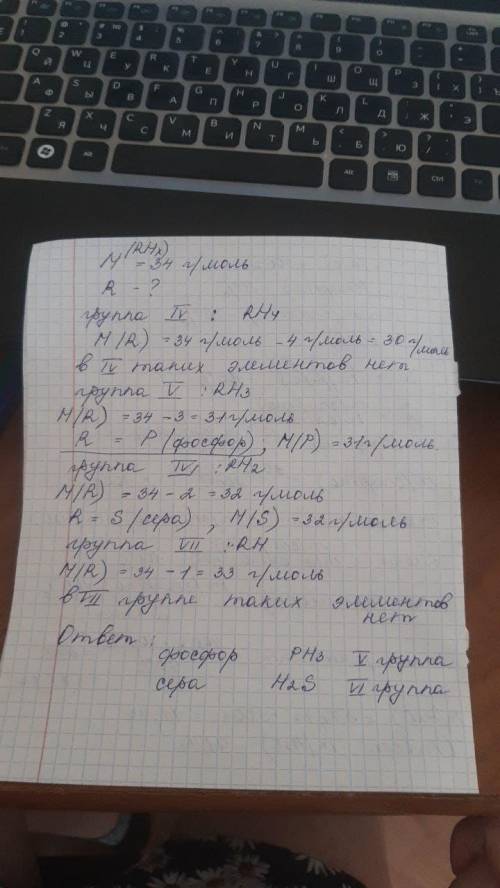 M(RHx) = 34 г/моль
R - ?
группа IV : RH4
M(R) = 34 г/моль - 4 г/моль = 30 г/моль
в IV таких элементов нет
группа V : RH3
M(R) = 34 - 3 = 31 г/моль
R = P (фосфор), M(P) = 31 г/моль.
группа VI : RH2
M(R) = 34 - 2 = 32 г/моль
R = S (сера), M(S) = 32 г/моль
группа VII : RH
M(R) = 34 - 1 = 33 г/моль
в VII группе таких элементов нет
Ответ:
фосфор PH3 V группа
сера H2S VI группа